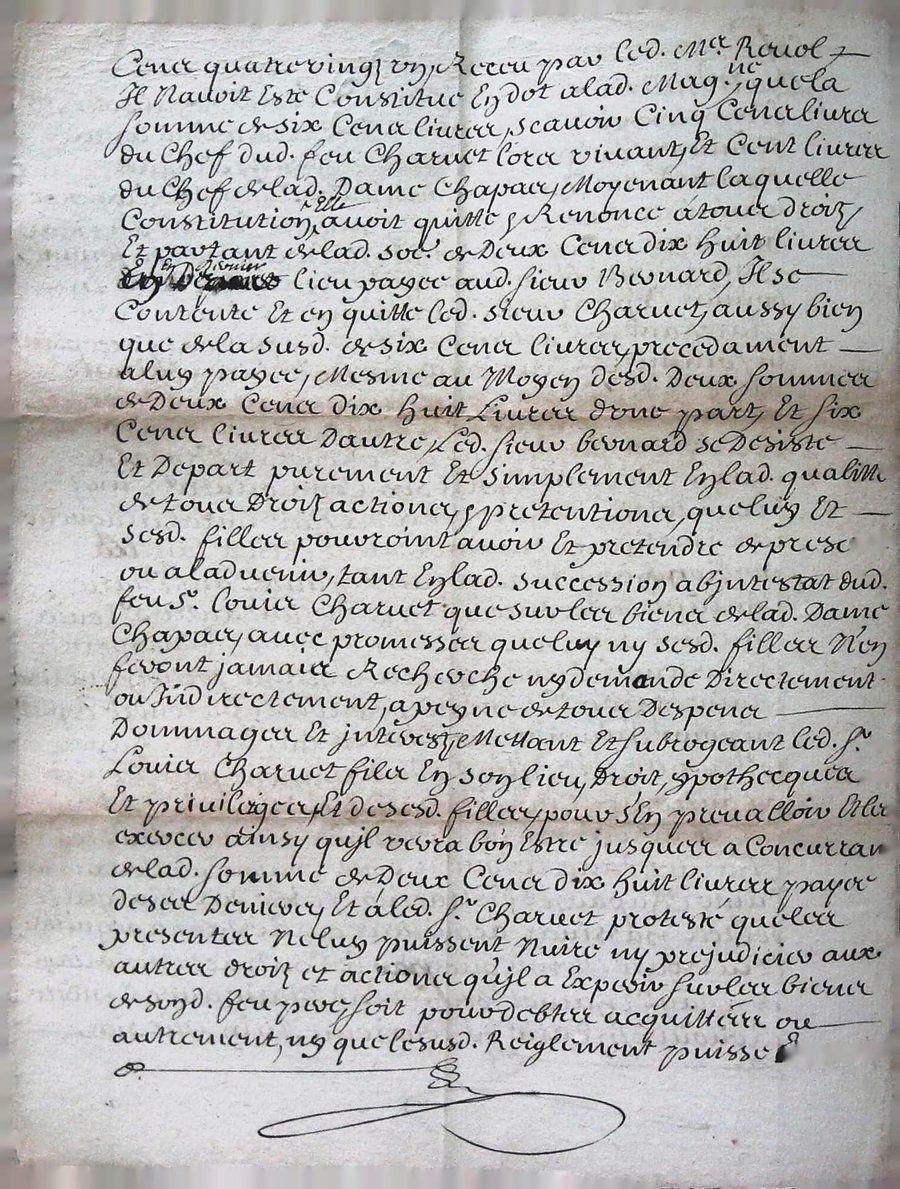 Cens quatrevingt un, Receu par led. Me. Revol
Il Navoit Esté Constitué En dot alad. Magne, que la
somme de six Cens livres, scavoir Cinq Cens livres
du Chef dud. feu Charvet lors vivant, Et Cent livres
du Chef delad. Dame Chapas, Moyenant laquelle
Constitution, Elle avoit quitté & Renoncé à tous droitz,
Et partant delad. soe. de Deux Cens dix huit livres
En Dernier lieu payée aud. sieur Bernard, Il se
Contente Et en quitte led. sieur Charvet, aussy bien
que de la susd. de six Cens livres, precedament
a luy payée, Mesme au Moyen desd. Deux sommes
de Deux Cens dix huit Livres d'one part, Et six
Cens livres Dautre, Led. sieur bernard se Desiste
Et Depart purement Et simplement En lad. qualitté
de tous Droitz actions, & pretentions, que luy Et
sesd. filles pouvroint avoir Et pretendre de prese
ou a ladvenir, tant En lad. succession abjntestat dud.
feu Sr. Louis Charvet que sur les biens delad. Dame
Chapas, avec promesses que luy ny sesd. filles N'en
feront jamais Recherche ny demande Directement
ou Indirectement, a peyne de tous Despens
Dommages Et jnterestz, Mettant Et subrogeant led. Sr.
Louis Charvet fils En son lieu, Droit, ypotheques
Et privileges, Et desesd. filles, pour s'En prevalloir Et les
exercer ainsy qu'jl verra bon Estre jusques a Concurran
delad. somme de Deux Cens dix huit livres payée
de ses Deniers, Et aled. Sr. Charvet protesté que les
presentes Ne luy puissent Nuire ny prejudicier aux
autres droitz et actions qu'jl a Exp̄oir sur les biens
de sond. feu pere, soit pour debtes acquittées ou
autrement, ny que le susd. Reiglement puisse